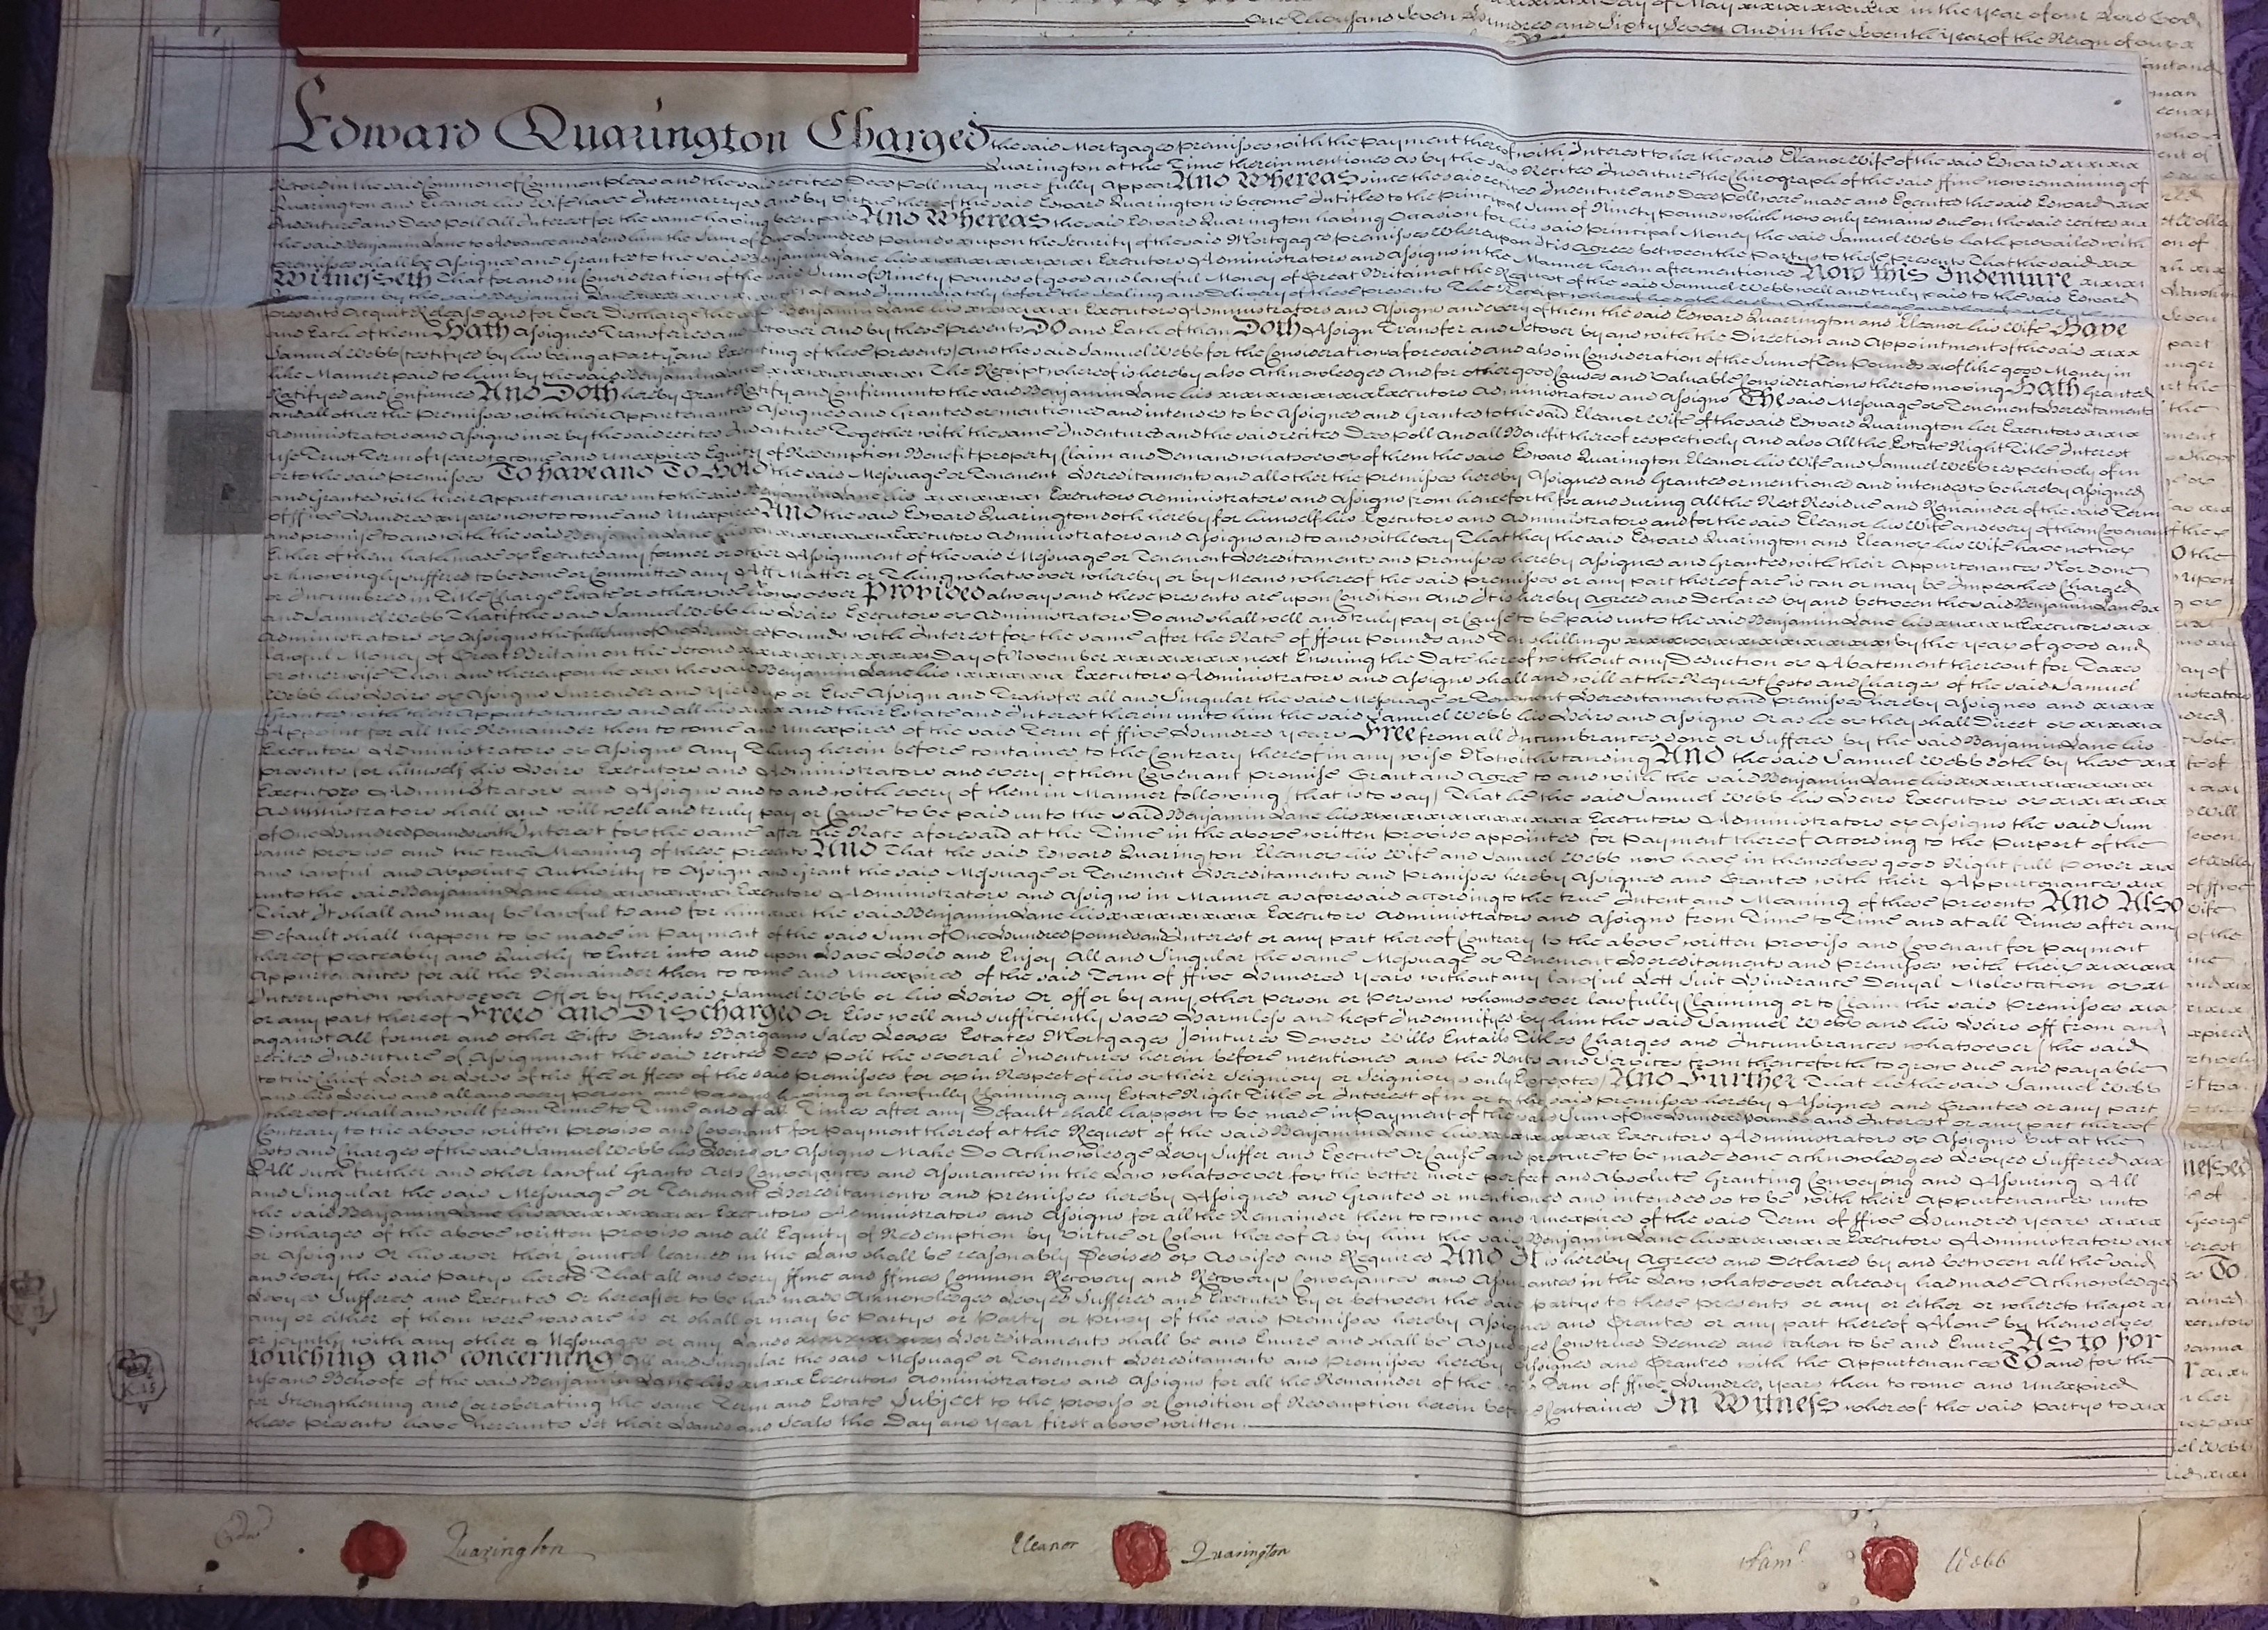 Day of May xixixixixixix in the year of our Lord God
One Thousand Seven Hundred and Sixty Seven And in the Seventh Year of the Reign of our
Edward Quarington Charged the said Mortgaged premisses with the payment thereof with Interest to her the said Eleanor Wife of the said Edward xixixix
Quarington at the Time therein mentioned As by the said Recited Indenture the Chirograph of the said ffine now remaining of
Record in the said Common of Common pleas and the said recited Deed Poll may more fully Appear And Whereas since the said recited Indenture and Deed Poll were made and Executed the said Edward xix
Quarington and Eleanor his Wife have Intermarryed and by Virtue thereof the said Edward Quarington is become Intitled to the Principal Sum of Ninety pounds which now only remains due on the said recited xix
Indenture and Deed Poll all Interest for the same having been paid And Whereas the said Edward Quarington having Occasion for his said principal Money the said Samuel Webb hath prevailed with
the said Benjamin Lane to Advance and Lend him the Sum of One Hundred Pounds xixupon the Security of the said Mortgaged Premisses Whereupon It is Agreed between the Partys to these presents That the said xix
premisses shall be Assigned and Granted to the said Benjamin Lane his xixixixixix Executors Administrators and Assigns in the Manner herein after mentioned Now this Indenture xixixi
Witnesseth That for and in Consideration of the said Sum of Ninety pounds of good and lawful Money of Great Britain at the Request of the said Samuel Webb well and truly paid to the said Edward
Quarington by the said Benjamin Lane at and Immediately before the Sealing and Delivery of these presents The Receipt whereof
presents Acquit Release and for Ever Discharge the said Benjamin Lane his Executors Administrators and Assigns and every of them the said Edward Quarington and Eleanor his Wife Have
and Each of them Hath Assigned Transferred and Setover And by these presents Do and Each of them Doth Assign Transfer and Setover by and with the Direction and Appointment of the said xixx
Samuel Webb (testifyed by his being a party and Executing of these presents) And the said Samuel Webb for the Consideration aforesaid and also in Consideration of the Sum of Ten Pounds xof like good Money in
like Manner paid to him by the said Benjamin Lane xixixixixixi The Receipt whereof is hereby also Acknowledged And for other good Causes and Valuable Considerations thereto moving Hath Granted
Ratifyed and Confirmed And Doth hereby Grant Ratify and Confirm unto the said Benjamin Lane his xixixixixixix Executors Administrators and Assigns The said Messuage or Tenement Hereditaments
and all other the Premisses with their Appurtenances Assigned and Granted or mentioned and intended to be Assigned and Granted to the said Eleanor Wife of the said Edward Quarington her Executors xixix
Administrators and Assigns in or by the said recited Indenture Together with the same Indentures and the said recited Deed Poll And all Benefit thereof respectively And also All the Estate Right Title Interest
Use Trust Term of years to come and unexpired Equity of Redemption Benefit property Claim and Demand whatsoever of them the said Edward Quarington Eleanor his Wife and Samuel Webb respectively of in
or to the said premisses To have and To Hold the said Messuage or Tenement Hereditaments and all other the Premisses hereby Assigned and Granted or mentioned and intended to be hereby Assigned
and Granted with their Appurtenances unto the said Benjamin Lane his xixixixixi Executors Administrators and Assigns from henceforth for and during All the Rest Residue and Remainder of the said Term
of ffive Hundred xyears now to come and Unexpired And the said Edward Quarington doth hereby for himself his Executors and Administrators and for the said Eleanor his Wife and every of them Covenant
and promise to and with the said Benjamin Lane his Executors Administrators and Assigns and to and with every That they the said Edward Quarington and Eleanor his Wife have not nor
Either of them hath made or Executed any former or other Assignment of the said Messuage or Tenement Hereditaments and premisses hereby Assigned and Granted with their Appurtenances Nor done
or knowingly suffered to be done or Committed any Act Matter or Thing whatsoever whereby or by Means whereof the said premisses or any part thereof are is can or may be Impeached Charged
or Incumbred in Title Charge Estate or otherwise howsoever Provided always and these presents are upon Condition And It is hereby Agreed and Declared by and between the said Benjamin Lane xx
and Samuel Webb That if the said Samuel Webb his Heirs Executors or Administrators Do and shall well and truly pay or Cause to be paid unto the said Benjamin Lane his Executors xix
Administrators or Assigns the full Sum of One Hundred Pounds with Interest for the same after the Rate of ffour Pounds and Ten shillings xixixixixixixixix by the year of good and
lawful Money of Great Britain on the Second Day of November xixixixixix next Ensuing the Date hereof without any Deduction or Abatement thereout for Taxes
or otherwise Then and thereupon he xixi the said Benjamin Lane his xixixixix Executors Administrators and Assigns shall and will at the Request Costs and Charges of the said Samuel
Webb his Heirs or Assigns Surrender and yield up or Else Assign and Transfer all and Singular the said Messuage or Tenement Hereditaments and premisses hereby Assigned and xixix
Granted with their Appurtenances and all his xixx and their Estate and Interest therein unto him the said Samuel Webb his Heirs and Assigns Or as he or they shall Direct or xixixix
Appoint for all the Remainder then to come and Unexpired of the said Term of ffive Hundred Years Free from all Incumbrances done or Suffered by the said Benjamin Lane his
Executors Administrators or Assigns Any Thing herein before contained to the Contrary thereof in any wise Notwithstanding And the said Samuel Webb doth by these xix
presents for himself his Heirs Executors and Administrators and every of them Covenant Promise Grant and Agree to and with the said Benjamin Lane his xixixixixixixix
Executors Administrators and Assigns and to and with every of them in Manner following (that is to say) That he the said Samuel Webb his Heirs Executors or xixixixix
Administrators shall and will well and truly pay or Cause to be paid unto the said Benjamin Lane his xixixixixixixixixix Executors Administrators or Assigns the said Sum
of One Hundred Pounds with Interest for the same after the Rate aforesaid at the Time in the above written Proviso appointed for Payment thereof According to the Purport of the
same proviso and the true Meaning of these presents And That the said Edward Quarington Eleanor his Wife and Samuel Webb now have in themselves good Right full Power xix
and lawful and Absolute Authority to Assign and Grant the said Messuage or Tenement Hereditaments and Premisses hereby Assigned and Granted with their Appurtenances xix
unto the said Benjamin Lane his xixixixixixi Executors Administrators and Assigns in Manner as aforesaid according to the true Intent and Meaning of these Presents And Also
That It shall and may be lawful to and for him xixi the said Benjamin Lane his xixixixixixix Executors Administrators and Assigns from Time to Time and at all Times after any
Default shall happen to be made in Payment of the said Sum of One Hundred Pounds and Interest or any part thereof Contrary to the above written proviso and Covenant for payment
thereof peaceably and Quietly to Enter into and upon Have Hold and Enjoy All and Singular the same Messuage or Tenement Hereditaments and Premisses with their xixixix
Appurtenances for all the Remainder then to come and Unexpired of the said Term of ffive Hundred Years without any lawful Lett Suit Hindrance Denyal Molestation or xi
Interruption whatsoever Of or by the said Samuel Webb or his Heirs Or off or by any other Person or Persons whomsoever lawfully Claiming or to Claim the said Premisses xix
or any part thereof Freed and Discharged Or Else well and sufficiently saved Harmless and kept Indemnifyed by him the said Samuel Webb and his Heirs off from and
against all former and other Gifts Grants Bargains Sales Leases Estates Mortgages Jointures Dowers Wills Entails Titles Charges and Incumbrances whatsoever (the said
recited Indenture of Assignment the said recited Deed Poll the several Indentures herein before mentioned and the Rents and Services from thenceforth to grow due and payable
to the Chief Lord or Lords of the ffee or ffees of the said Premisses for or in Respect of his or their Seigniory or Seigniorys only Excepted) And Further That he the said Samuel Webb
and his Heirs and all and every person and Persons having or lawfully Claiming any Estate Right Title or Interest of in or to the said premisses hereby Assigned and Granted or any part
thereof shall and will from Time to Time and at all Times after any Default shall happen to be made in Payment of the said Sum of One Hundred Pounds and Interest or any part thereof
Contrary to the above written Proviso and Covenant for Payment thereof at the Request of the said Benjamin Lane his Executors Administrators or Assigns but at the
Costs and Charges of the said Samuel Webb his Heirs or Assigns Make Do Acknowledge Levy Suffer and Execute Or Cause and procure to be made done acknowledged Levyed Suffered xix
All such further and other lawful Grants Acts Conveyances and Assurances in the Law whatsoever for the better more perfect and absolute Granting Conveying and Assuring All
and Singular the said Messuage or Tenement Hereditaments and premisses hereby Assigned and Granted or mentioned and intended so to be with their Appurtenances unto
the said Benjamin Lane his xixixixixixixix Executors Administrators and Assigns for all the Remainder then to come and Unexpired of the said Term of ffive Hundred years xixix
Discharged of the above written proviso and all Equity of Redemption by Virtue or Colour thereof As by him the said Benjamin Lane his xixixixix Executors Administrators xix
or Assigns Or his xor their Council learned in the Law shall be reasonably Devised or Advised and Required And It is hereby Agreed and Declared by and between all the said
and every the said Partys hereto That all and every ffine and ffines Common Recovery and Recoverys Conveyances and Assurances in the Law whatsoever already had made Acknowledged
Levyed Suffered and Executed Or hereafter to be had made Acknowledged Levyed Suffered and Executed by or between the said partys to these presents or any or either or whereto they or
any or either of them were was are is or shall or may be Partys or Party or Privy of the said Premisses hereby Assigned and Granted or any part thereof Alone by themselves
or jointly with any other Messuages or any Lands xixixixixix Hereditaments shall be and Enure and shall be Adjudged Construed Deemed and taken to be and Enure As to for
touching and concerning All and Singular the said Messuage or Tenement Hereditaments and Premisses hereby Assigned and Granted with the Appurtenances To and for the
use and Behoofe of the said Benjamin Lane his xixixix Executors Administrators and Assigns for all the Remainder of the said Term of ffive Hundred years then to come and Unexpired
for Strengthening and Corroberating the same Term and Estate Subject to the proviso or Condition of Redemption herein before Contained In Witness whereof the said Partys to xix
these Presents have hereunto set their Hands and Seals the Day and Year first above written
Edw Quarington
Eleanor Quarington
Sam Webb